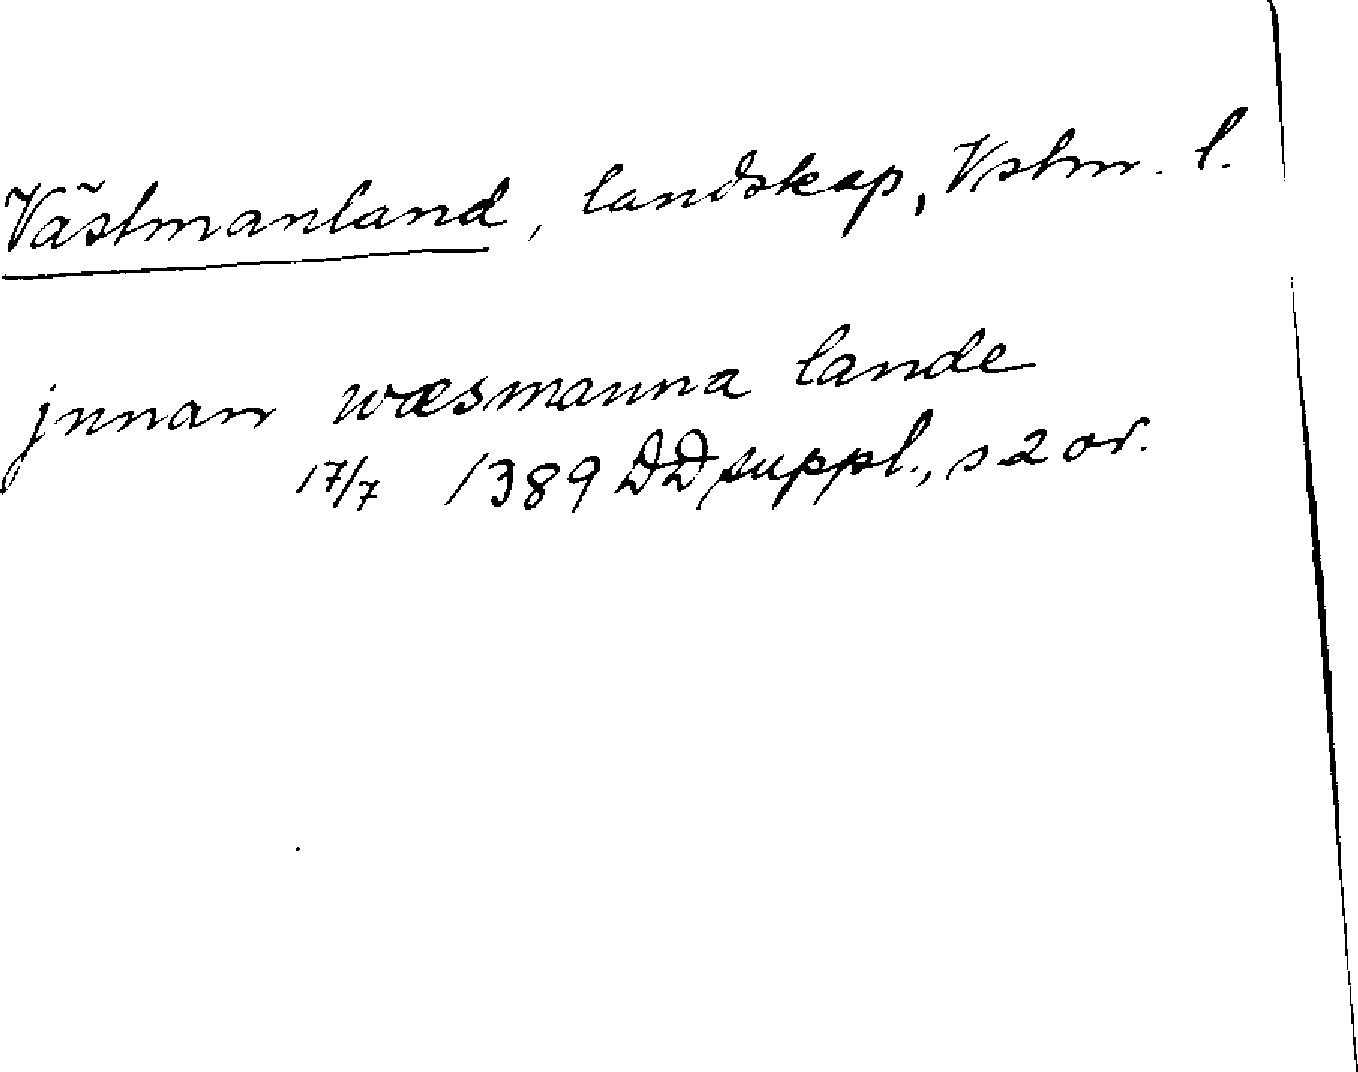 Västmanland, landskap, Vstm. l.
jnnan wæsmanna lande
17/7 1389 DD suppl., s 2 or.